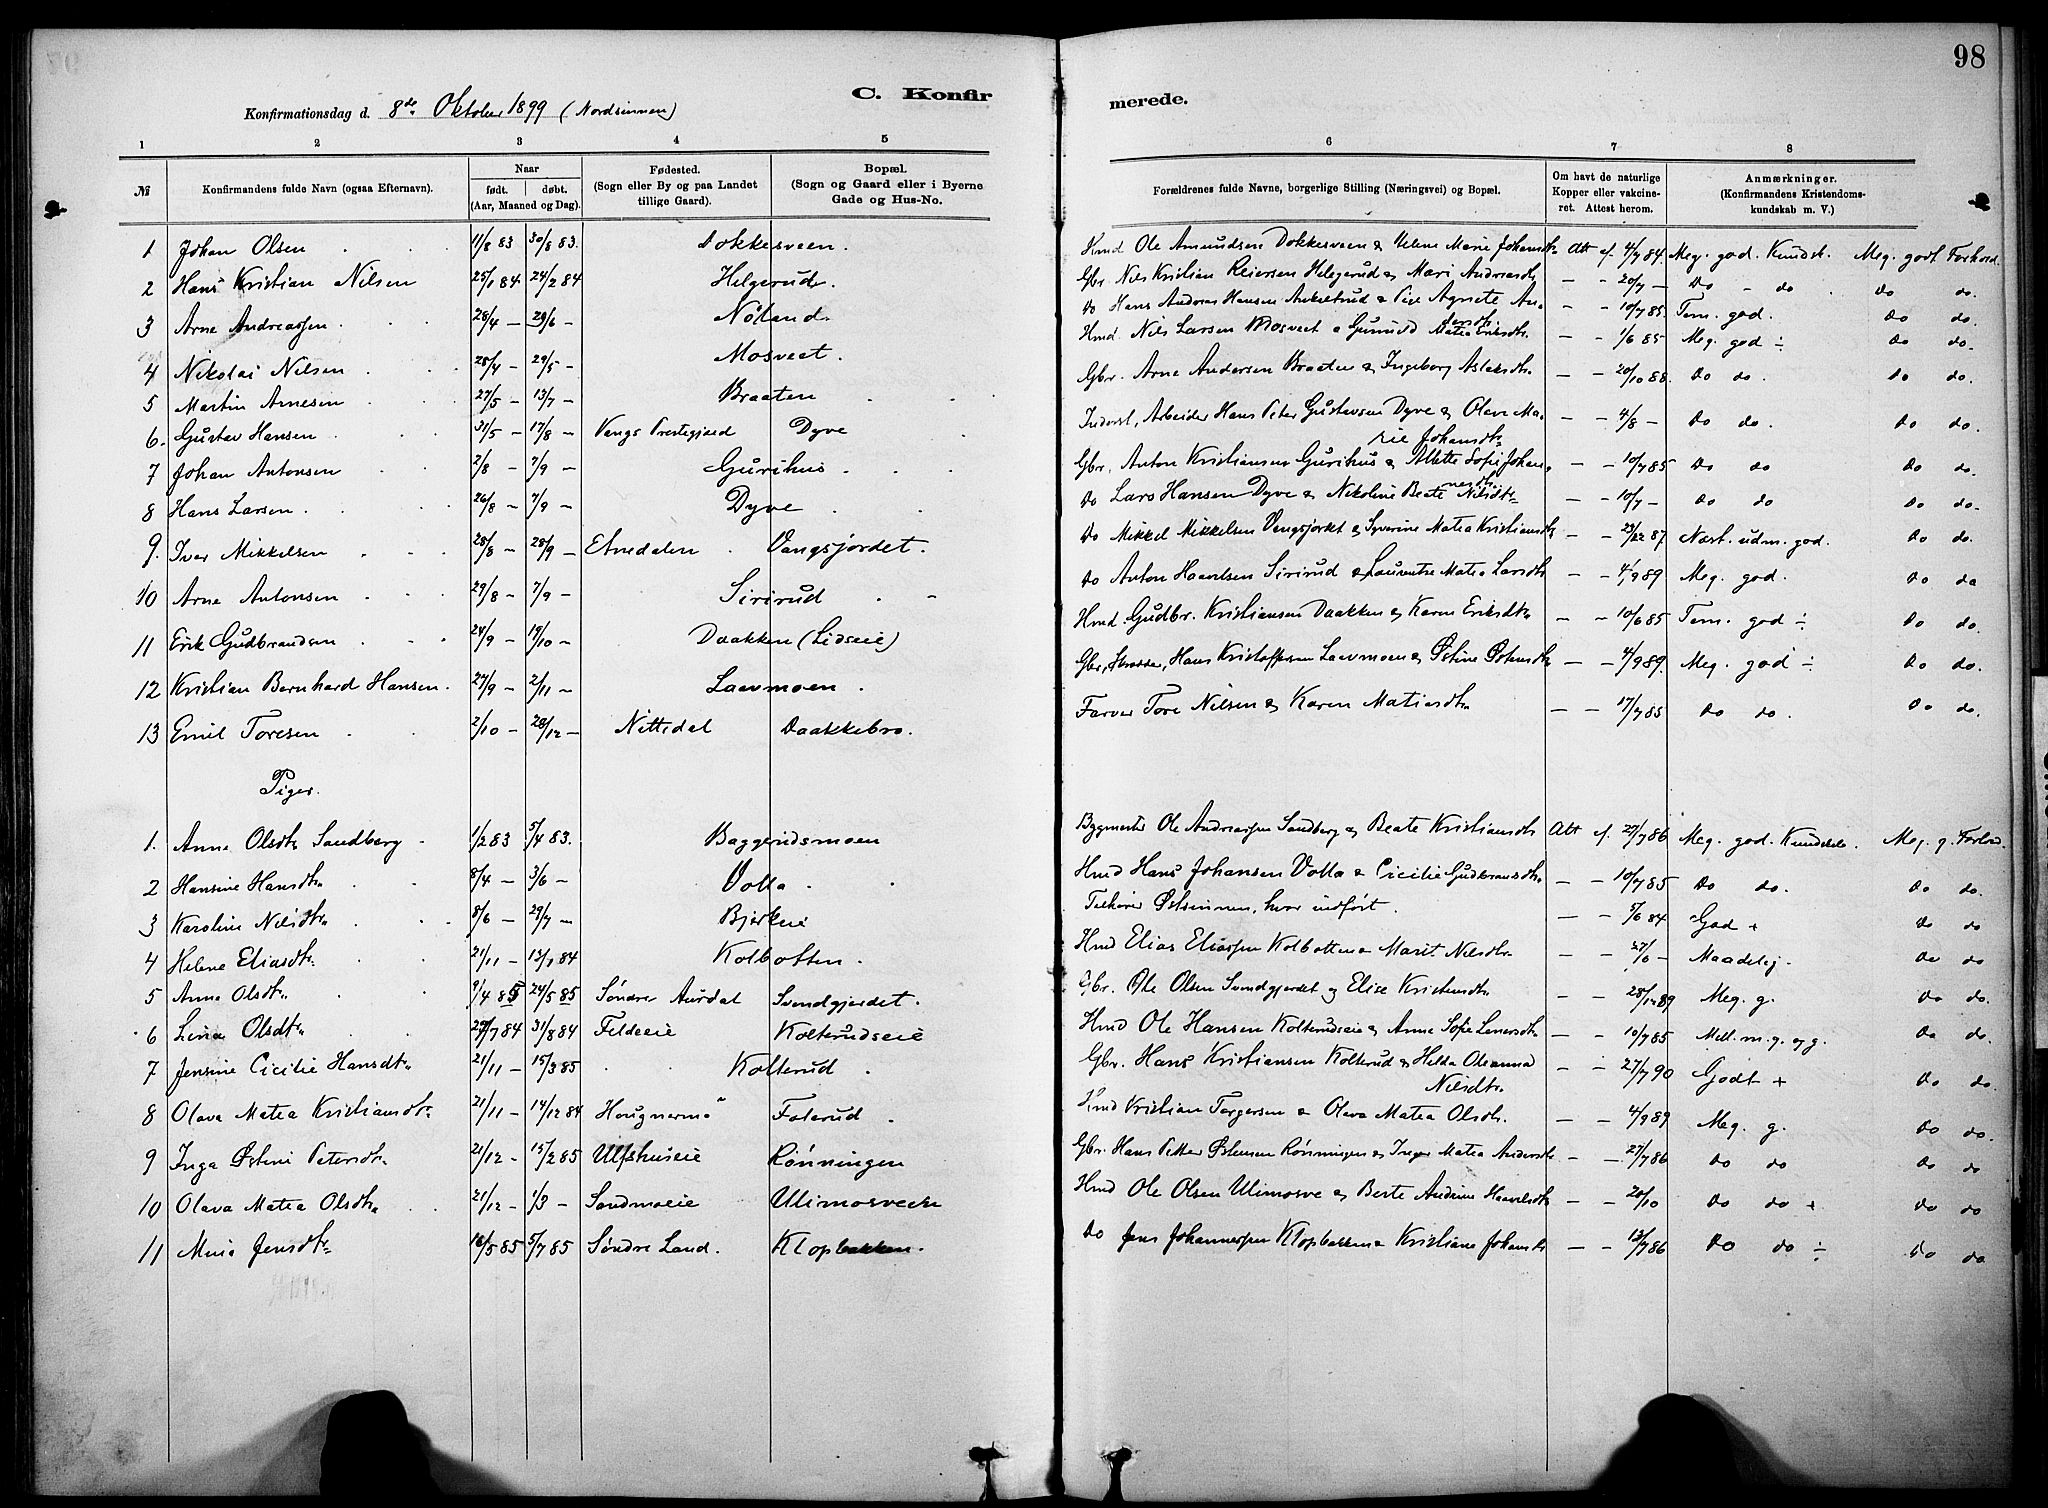 98
C. Konfir
merede.
Konfirmationsdag d. 8de Oktober 1899 (Nordsinnen)
1 2 3 4 5 6 7 8
№ Konfirmandens fulde Navn (ogsaa Efternavn). Naar født. døbt. (Aar, Maaned og Dag). Fødested. (Sogn eller By og paa Landet tillige Gaard). Bopæl. (Sogn og Gaard eller i Byerne Gade og Hus-No. Forældrenes fulde Navne, borgerlige Stilling (Næringsvei) og Bopæl. Om havt de naturlige Kopper eller vakcineret. Attest herom. Anmærkninger. (Konfirmandens Kristendomskundskab m. V.)
1 Johan Olsen 11/8 83 30/8 83. Dokkesveen. Hmd. Ole Amundsen Dokkesveen & Helene Marie Johansdtr Att. af 4/7 84. Meg. god. Kundsk. Meg. godt Forhold.
2 Hans Kristian Nilsen 25/1 84. 24/2 84 Helgerud. Gbr. Nils Kristian Reiersen Helgerud & Mari Andreasdtr — — 20/7 — Do - do. do do.
3 Arne Andreassen 28/4 — 29/6 — Nøland. Do Hans Andreas Hansen & Agnete An- — — 10/7 85. Tem. god. Do do.
4 Nikolai Nilsen 28/4 — 29/5 — Mosveet. Hmd. Nils Larsen Mosveet & Gunild Matea Eriksdtr. — — 1/6 85 Meg. god ÷ Do do.
5 Martin Arnesen 27/5 — 13/7 — Braaten Gbr. Arne Andersen Braaten & Ingeborg Aslaksdtr. — — 20/10 88. Do do. Do do.
6. Gustav Hansen 31/5 — 17/8 — Vangs Prestegjeld Dyve Inderst, Arbeider Hans Peter Gustavsen Dyve & Olava Ma- — — 4/8 — Do do. Do do.
rie Johansdtr.
7 Johan Antonsen 2/8 — 7/9 — Gurihus Gbr. Anton Kristiansen Gurihus & Alette Sofie Johan- — — 10/7 85 Do do Do do.
8 Hans Larsen 26/8 — 7/9 — Dyve Do Lars Hansen Dyve & Nikoline Beate Nilsdtr — — 10/7 — Do do Do do.
9. Iver Mikkelsen 28/8 — 28/9 — Etnedalen Vangsjordet. Do Mikkel Mikkelsen Vangsjordet & Syverine Matea Kristiansdtr — — 23/12 87. Næst. udm. god. Do do.
10 Arne Antonsen 29/8 — 7/9 — Sirirud Do Anton Haavelsen Sirirud & Lauventse Matea Larsdtr — — 4/9 89 Meg. god. Do do
11 Erik Gudbrandsen 24/9 — 19/10 — Daakken (Lidseie) Hmd. Gudbr. Kristiansen Daakken & Karen Eriksdtr — — 10/6 85 Tem. god ÷ Do do.
12 Kristian Bernhard Hansen. 27/9 — 2/11 — Laavmoen. Gbr, Skrædder, Hans Kristoffersen Laavmoen & Østine Østensdtr — — 4/9 89. Meg. god ÷ Do do.
13 Emil Toresen 2/10 — 28/12 — Nittedal Daakkebro. Farver Tore Nilsen & Karen Matiasdtr. — — 17/7 85 Do do. Do do.
Piger.
1. Anna Olsdtr. Sandberg 1/2 83 5/4 83. Baggerudsmoen Bygmester Ole Andreassen Sandberg & Beate Kristiansdtr Att af. 27/7 86 Meg. god. Kundskab. Meg. g. Forhold.
2 Hansine Hansdtr. 8/4 — 3/6 — Volla Hmd Hans Johansen Volla & Cicilie Gudbransdtr. — — 10/7 85 Do do. Do do.
3 Karoline Nilsdtr. 8/6 — 29/7 — Bjerkeie Tilhører Østsinnen, hvor indført. — — 5/6 84 God + Do do
4 Helene Eliasdtr. 21/11 — 13/1 84 Kolbotten. Hmd Elias Eliassen Kolbotten & Marit Nilsdtr — — 27/6 — Maadelig. Do do
5 Anna Olsdtr. 9/4 85 24/5 85 Søndre Aurdal Svendgjerdet. Gbr. Ole Olsen Svendgjerdet og Elise Kristensdtr. — — 28/12 89 Meg. g. Do do.
6 Lina Olsdtr. 27/7 84 31/8 84 Feldeeie Kolterudseie Hmd Ole Hansen Kolterudseie & Anne Sofie Larsdtr — — 10/7 85 Mell. m. g. og g. Do do.
7 Jensine Cicilie Hansdtr. 21/11 — 15/3 85 Kolterud Gbr. Hans Kristiansen Kolterud & Helda Oleanna — — 27/7 90 Godt + Do do.
Nilsdtr.
8 Olava Matea Kristiansdtr. 21/11 — 14/12 84 Hougnermo Folerud Hmd Kristian Torgersen & Olava Matea Olsdtr. — — 4/9 89 Meg. g. Do do.
9 Inga Østine Petersdtr. 21/12 — 15/2 85 Ulfshuseie Rønningen Gbr. Hans Petter Østensen Rønningen & Inger Matea Andersdtr — — 27/7 86 Do do Do do
10 Olava Matea Olsdtr. 21/12 — 1/3 — Sandmoeie Ulimosveen Hmd Ole Olsen Ulimosve & Berte Andrine Haavelsdtr — — 20/10 Do do + Do do
11 Mina Jensdtr. 16/5 85 5/7 85 Søndre Land. Klopbakken. Do Jens Johannessen Klopbakken & Kristiane Johansdtr — — 13/7 86 Do do ÷ Do do